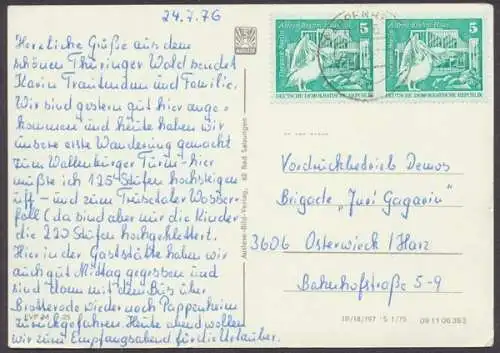 24.7.76
Herzliche Grüße aus dem
schönen Thüringer Wald sendet
Karin Trautmann und Familie.
Wir sind gestern gut hier ange-
kommen und heute haben wir
unsere erste Wanderung gemacht
zum Wallenburger Turm - hier
mußte ich 125 Stufen hochsteigen
uff - und zum Trusetaler Wasser-
fall (da sind aber nur die Kinder
die 220 Stufen hochgeklettert.
Hier in der Gaststätte haben wir
auch gut Mittag gegessen und
sind dann mit dem Bus über
Brotterode wieder nach Pappenheim
zurückgefahren. Heute abend wollen
wir zum Empfangsabend für die Urlauber.
Auslese-Bild-Verlag, 62 Bad Salzungen
DEUTSCHE DEMOKRATISCHE REPUBLIK
5
DEUTSCHE DEMOKRATISCHE REPUBLIK
5
Vordruckbetrieb Demos
Brigade „Juri Gagarin"
3606 Osterwieck / Harz
Bahnhofstraße 5-9
09 11 06 363